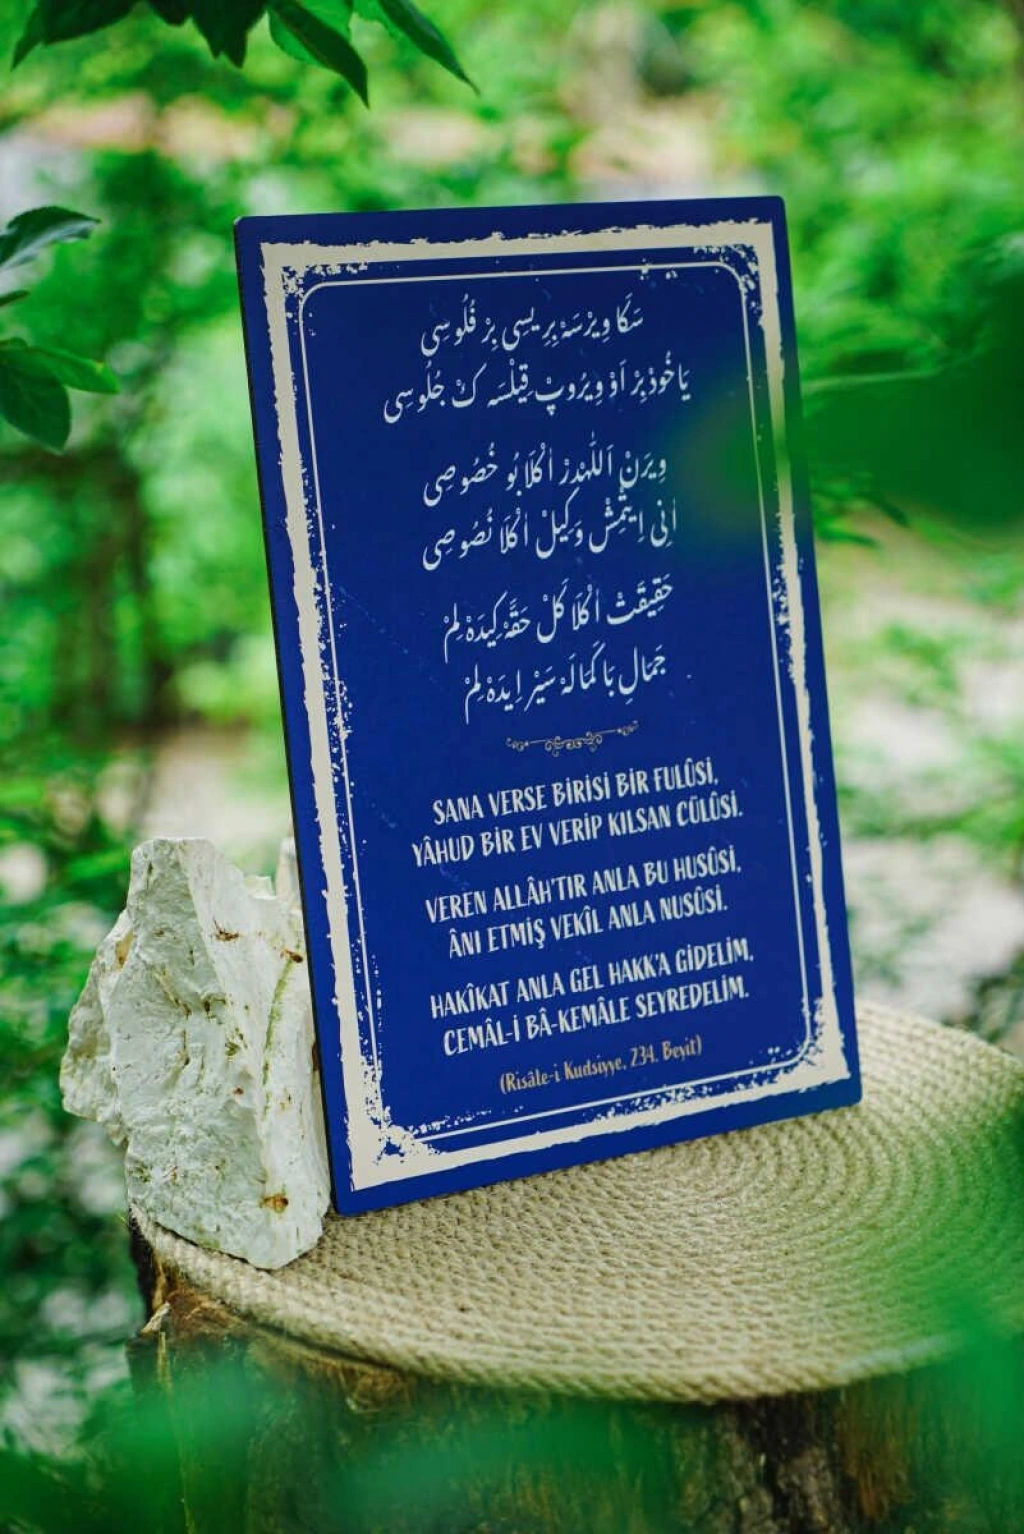 سَكَا وِيرْسَهْ بِرِيسِى بِرْ فُلُوسِى
يَاخُودْ بِرْ اَوْ وِيرُوپْ قِيلْسَهڭ جُلُوسِى
وِيرَنْ اَللّٰهْدِرْ اٰڭلَا بُو خُصُوصِى
اٰنِى اِيتْمِشْ وَكِيلْ اٰڭلَا نُصُوصِى
حَقِيقَتْ اٰڭلَا كَلْ حَقَّهْ كِيدَهْ لِمْ
جَمَالِ بَا كَمَالَهْ سَيْرْ اِيدَهْ لِمْ
SANA VERSE BİRİSİ BİR FULÛSİ,
YÂHUD BİR EV VERİP KILSAN CÜLÛSİ.
VEREN ALLÂH'TIR ANLA BU HUSÛSİ,
ÂNI ETMİŞ VEKÎL ANLA NUSÛSİ.
HAKÎKAT ANLA GEL HAKK'A GİDELİM,
CEMÂL-İ BÂ-KEMÂLE SEYREDELİM.
(Risâle-i Kudsiyye, 234. Beyit)